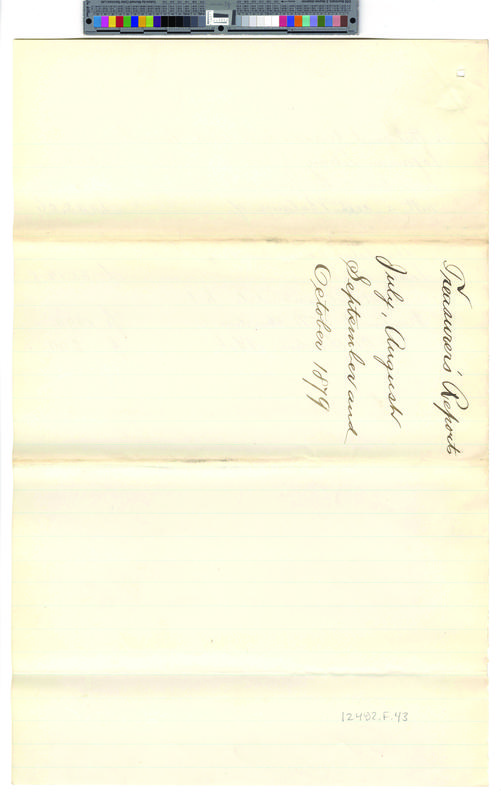 Treasurers' Report
July, August
September and
October 1879
12492.F.43